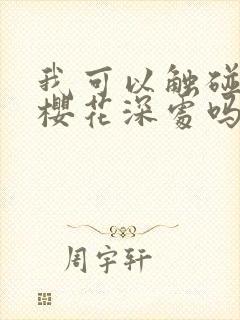 我可以触碰
樱花深处吗
周宇轩